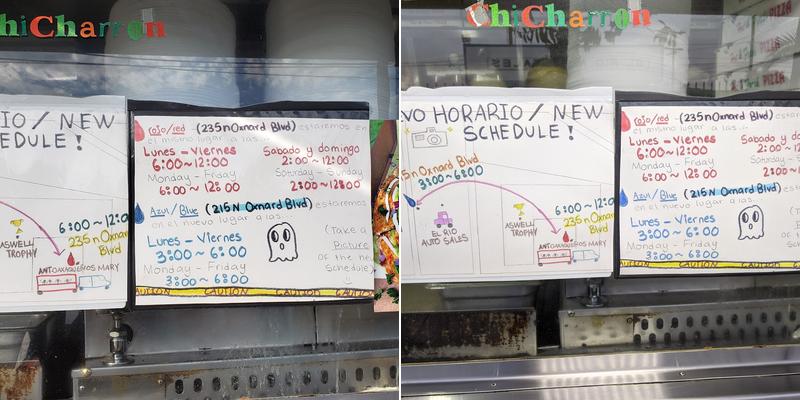 hiCharron
IO / NEW
EDULE!
6:00~12:0
235 n Oxnard
Blvd
ASWELL
TROPHY
ANTOJITOS MARY
rojo/red (235 n Oxnard Blvd) estaremos en
el mismo lugar a las...
Lunes - Viernes
6:00~12:00
Monday - Friday
6:00~12:00
Sabado y domingo
2:00~12:00
Saturday - Sunday
2:00~12:00
Azul/Blue (215 N Oxnard Blvd) estaremos
en el nuevo lugar a las...
Lunes - Viernes
3:00~6:00
Monday - Friday
3:00~6:00
(Take a
Picture
of the ne
Schedule)
CAUTION CAUTION CAUTION CAUTIO
ChiCharron
VO HORARIO / NEW
SCHEDULE!
5 n Oxnard Blvd
3:00~6:00
EL RIO
AUTO SALES
ASWELL
TROPHY
6:00~12:0
235 n Oxnard
Blvd
MARY
rojo/red (235 n Oxnard Blvd)
el mismo lugar a las...
Lunes - Viernes
6:00~12:00
Monday - Friday
6:00~12:00
Sabado y d
2:00~12
Saturday
2:00~1
Azul/Blue (215 N Oxnard Blvd)
en el nuevo lugar a las...
Lunes - Viernes
3:00~6:00
Monday - Friday
3:00~6:00
CAUTION CAUTION